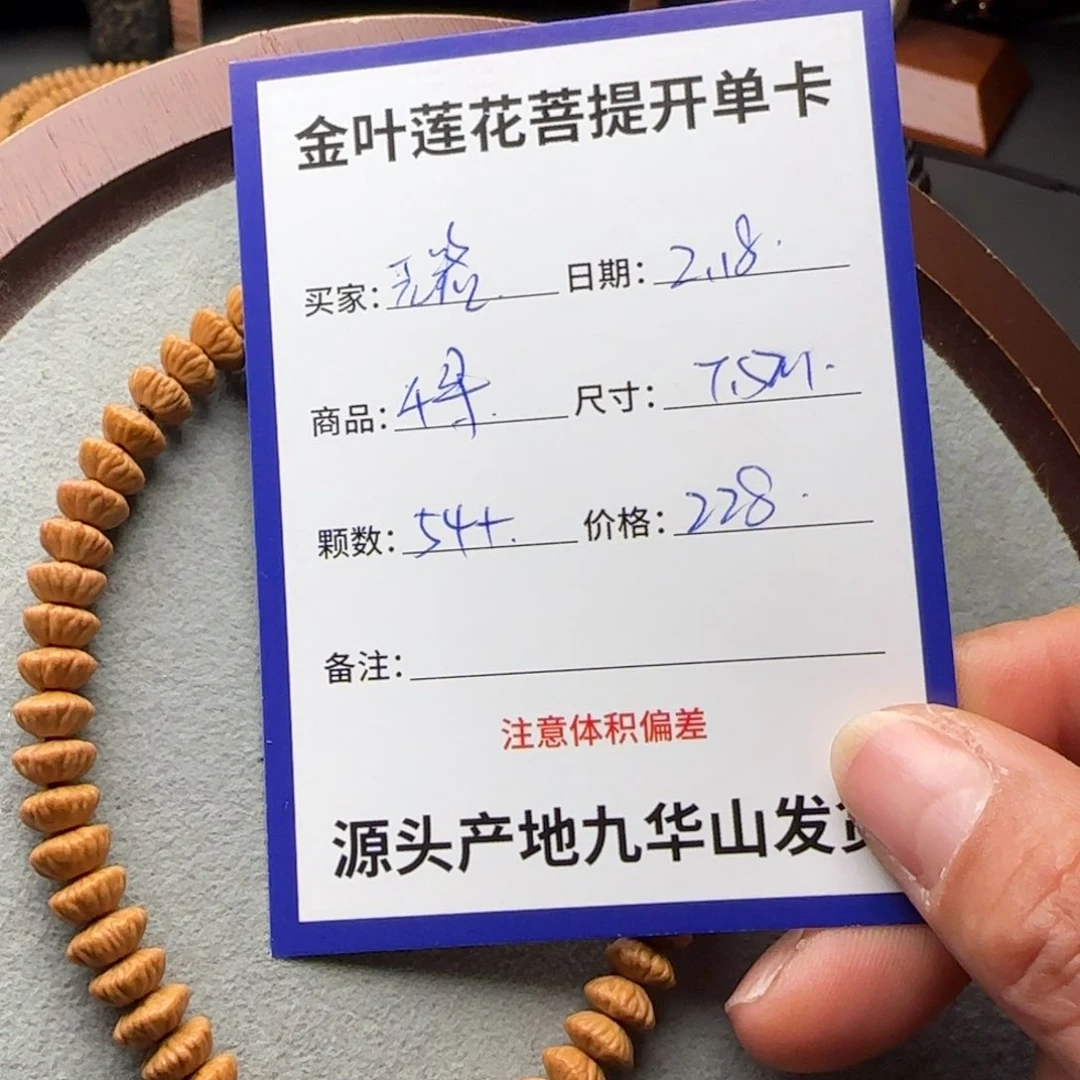 金叶莲花菩提开单卡
买家： 日期：2.18.
商品： 尺寸：7.5M.
颗数：54+. 价格：228.
备注：
注意体积偏差
源头产地九华山发货